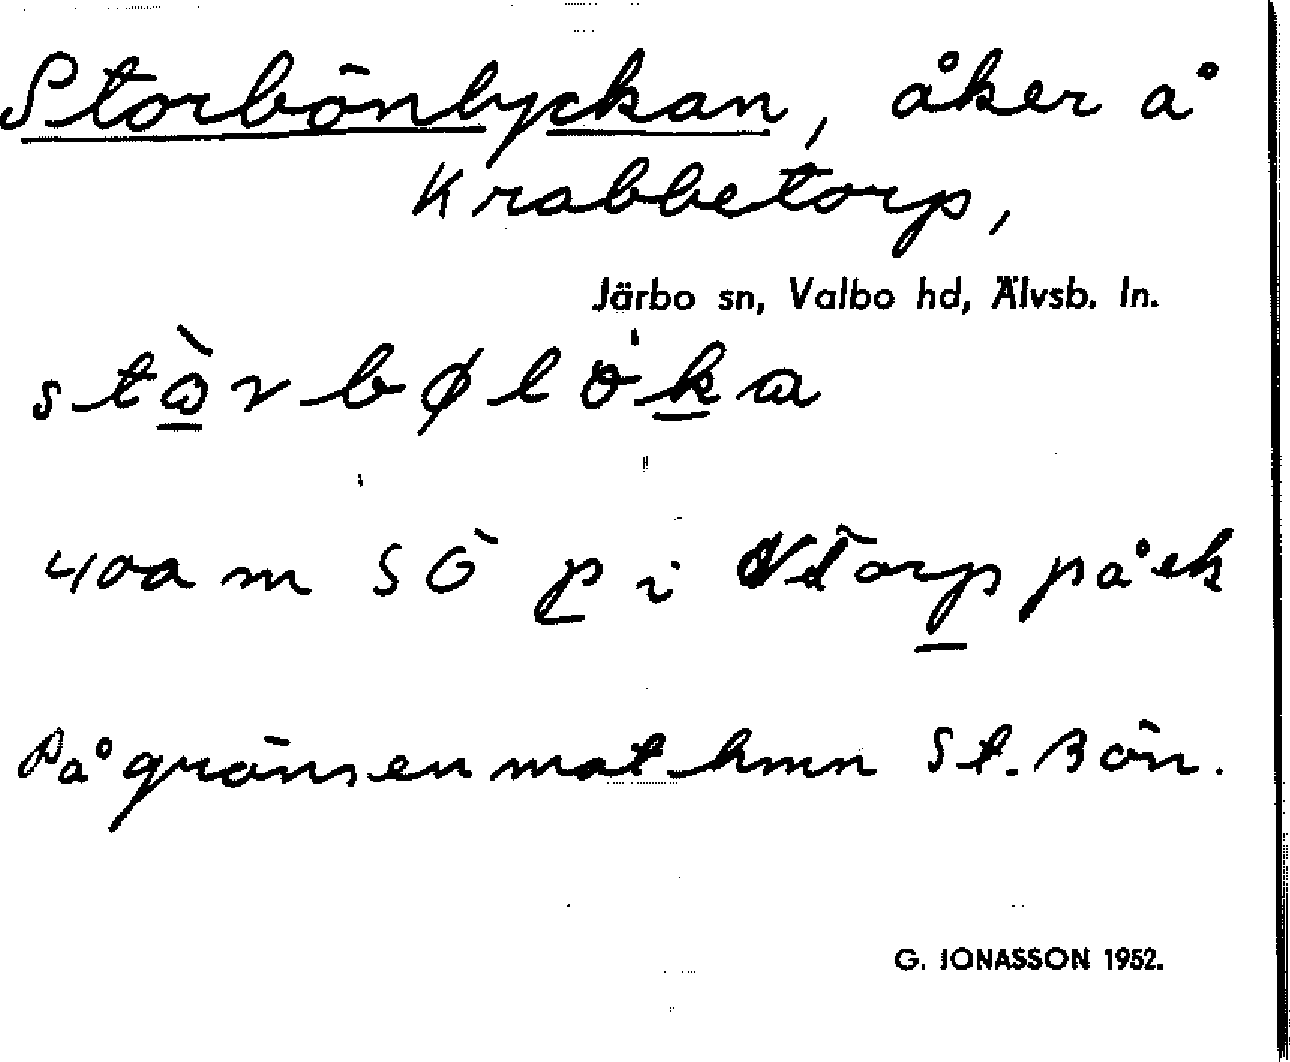 Storbönlyckan, åker å
Krabbetorp,
Järbo sn, Valbo hd, Älvsb. ln.
400 m SÖ p i torp på ek
På gränsen mot hmn St. Bön.
G. JONASSON 1952.